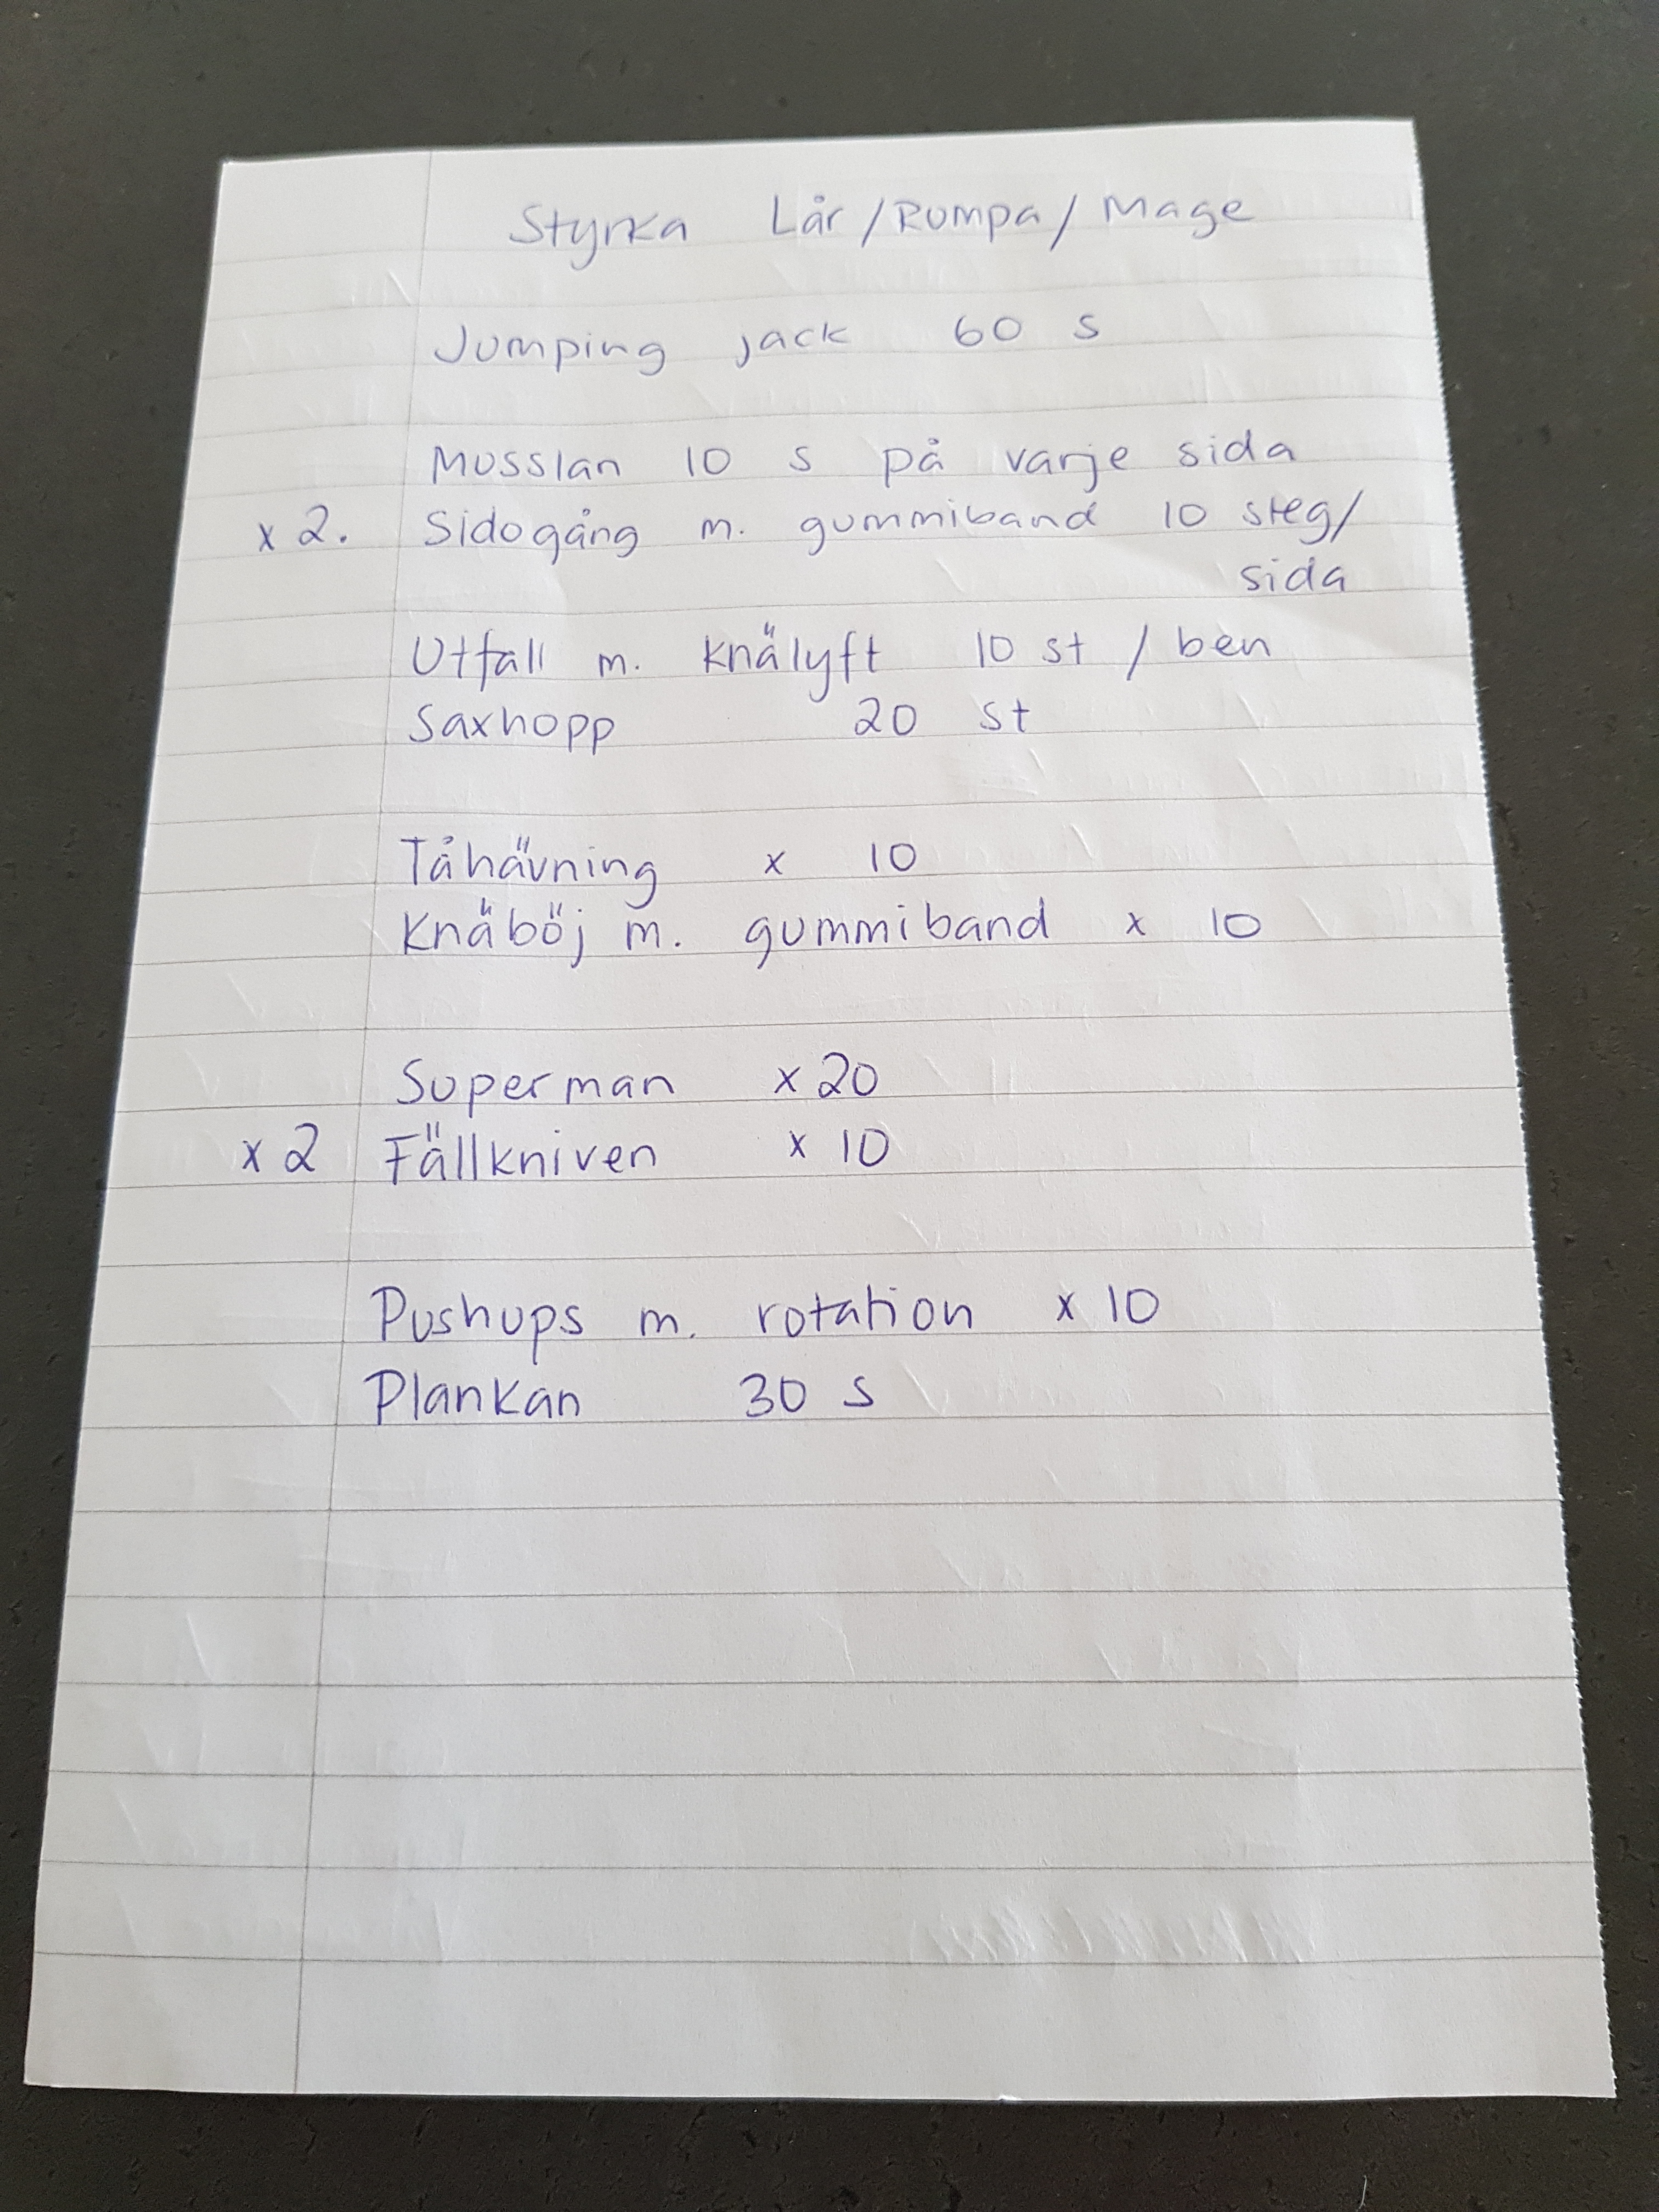 Styrka Lår/Rumpa/Mage
Jumping jack 60 s
Musslan 10 s på varje sida
x 2. Sidogång m. gummiband 10 steg/
sida
Utfall m. knälyft 10 st / ben
Saxhopp 20 st
Tåhävning x 10
Knäböj m. gummiband x 10
Superman x 20
x 2 Fällkniven x 10
Pushups m. rotation x 10
Plankan 30 s